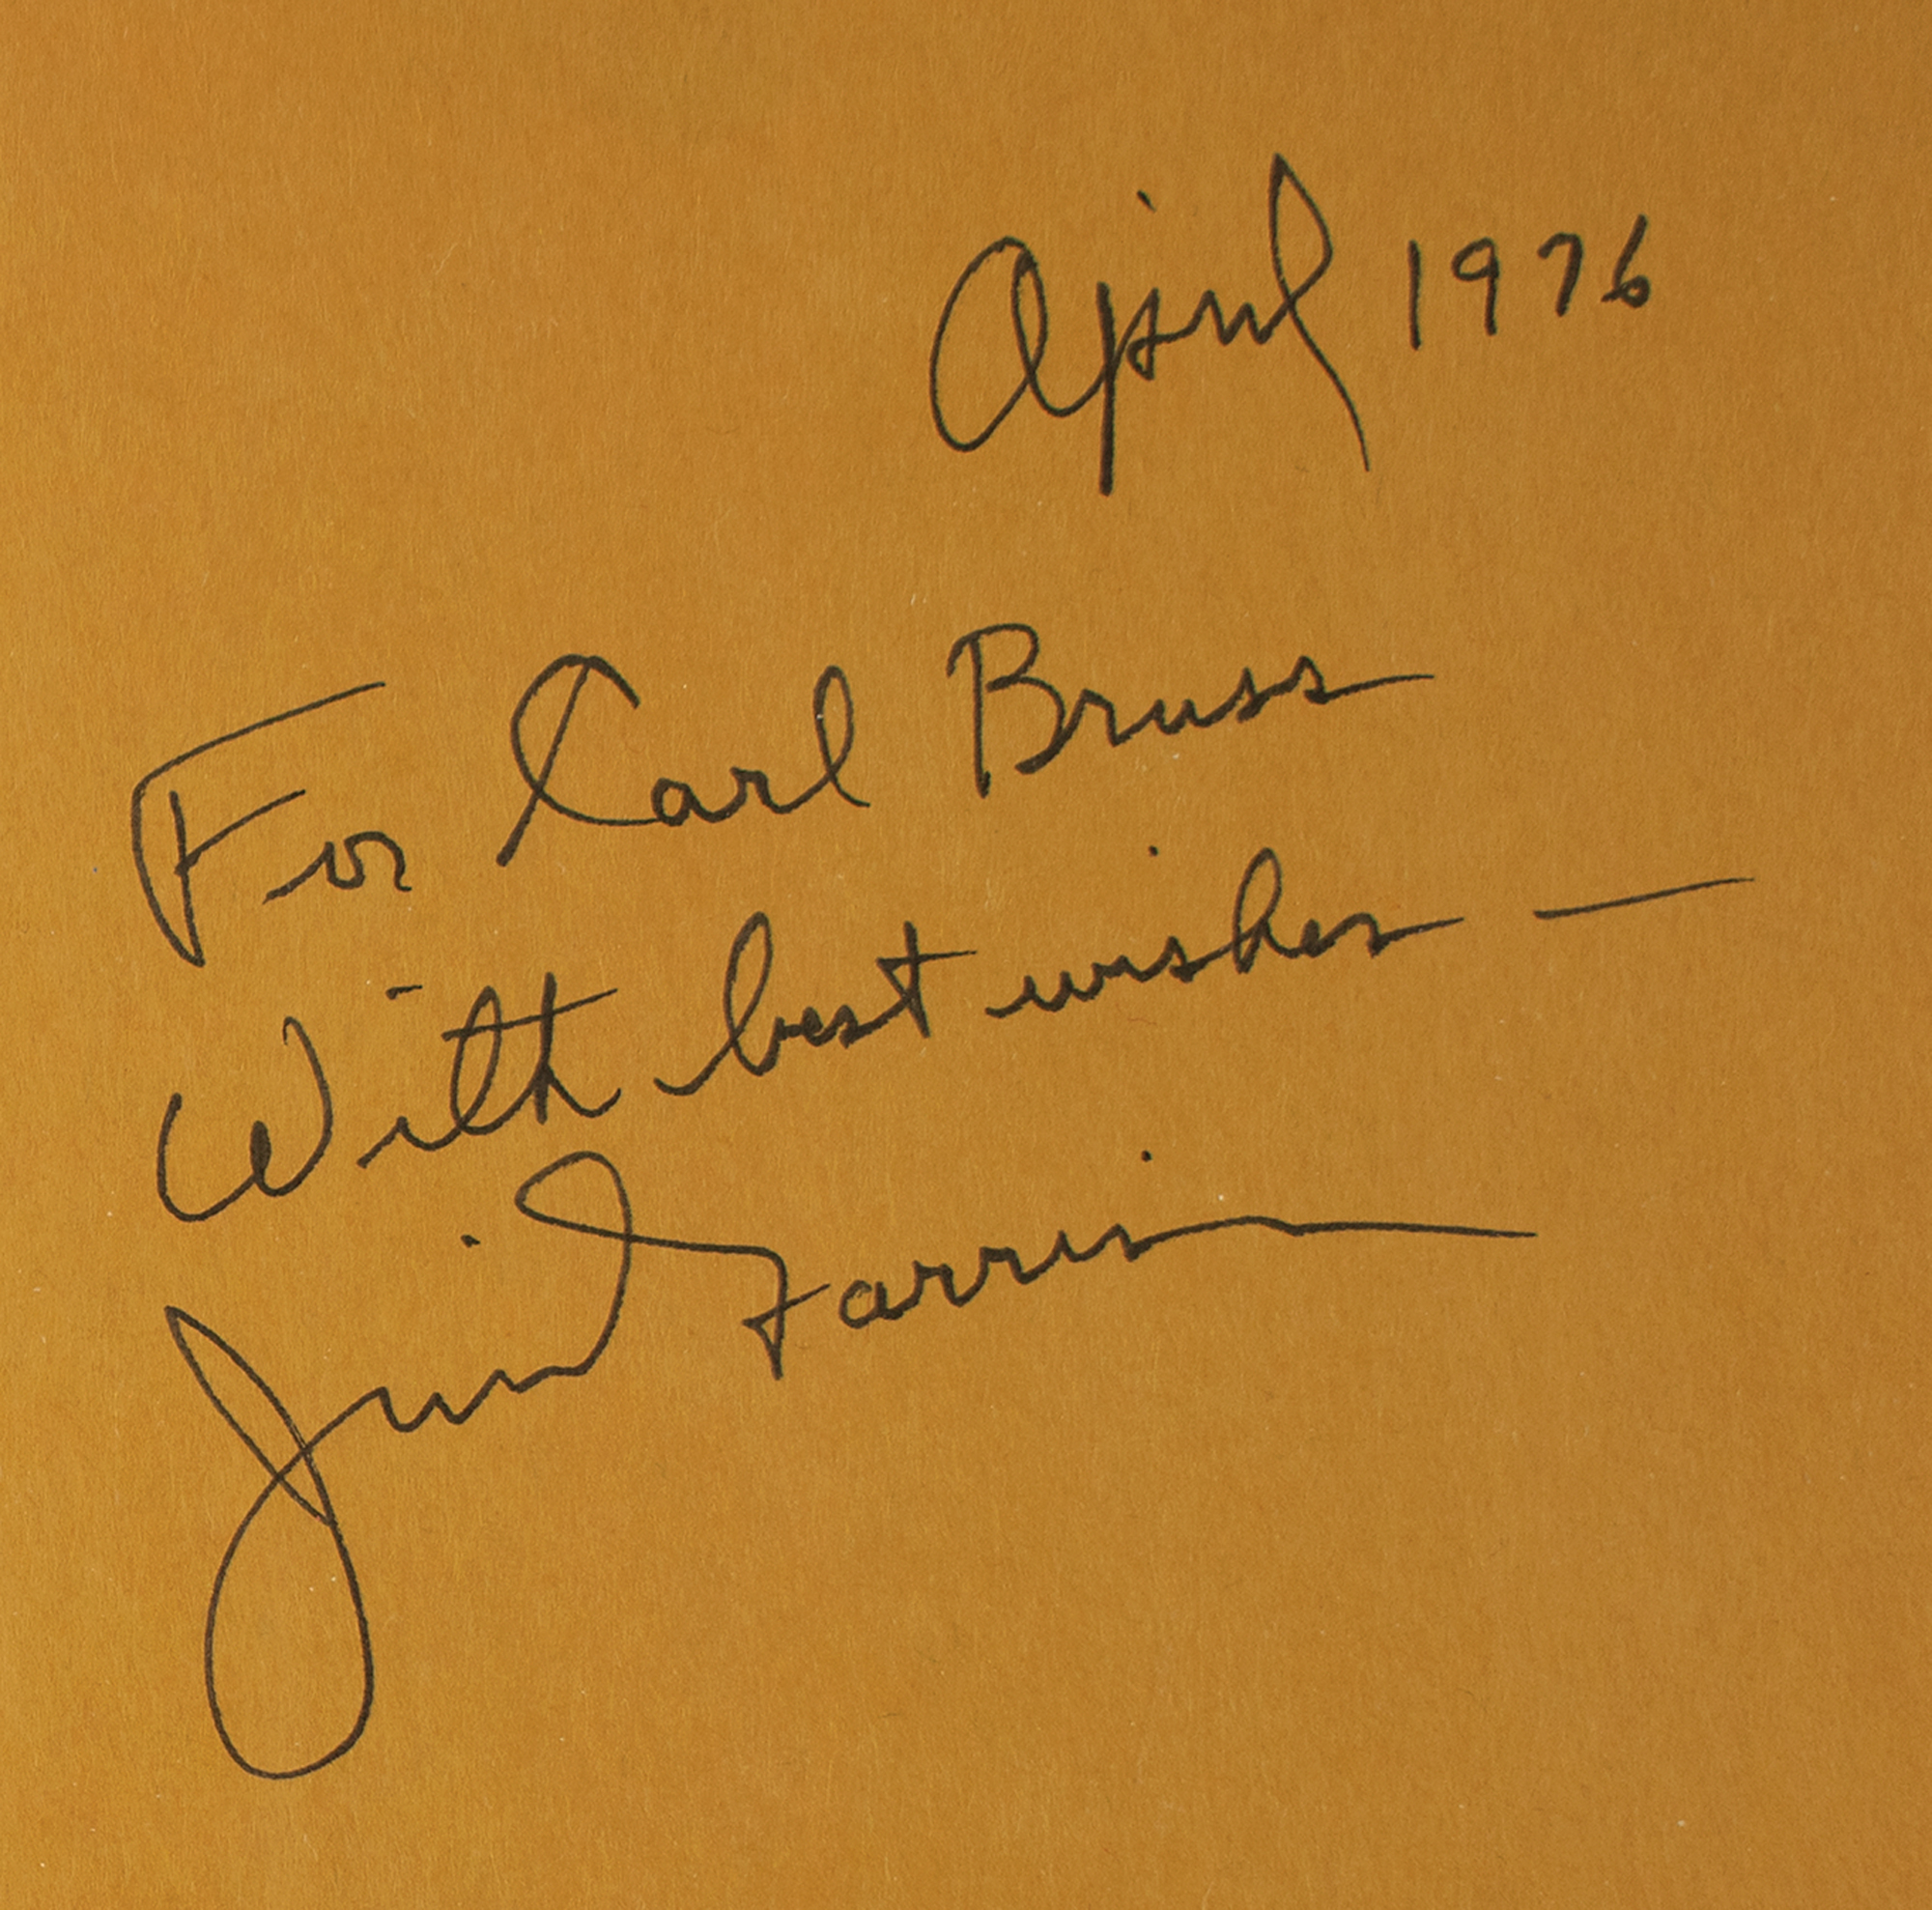 April 1976
For Carl Bruss
With best wishes —
Jim Farris